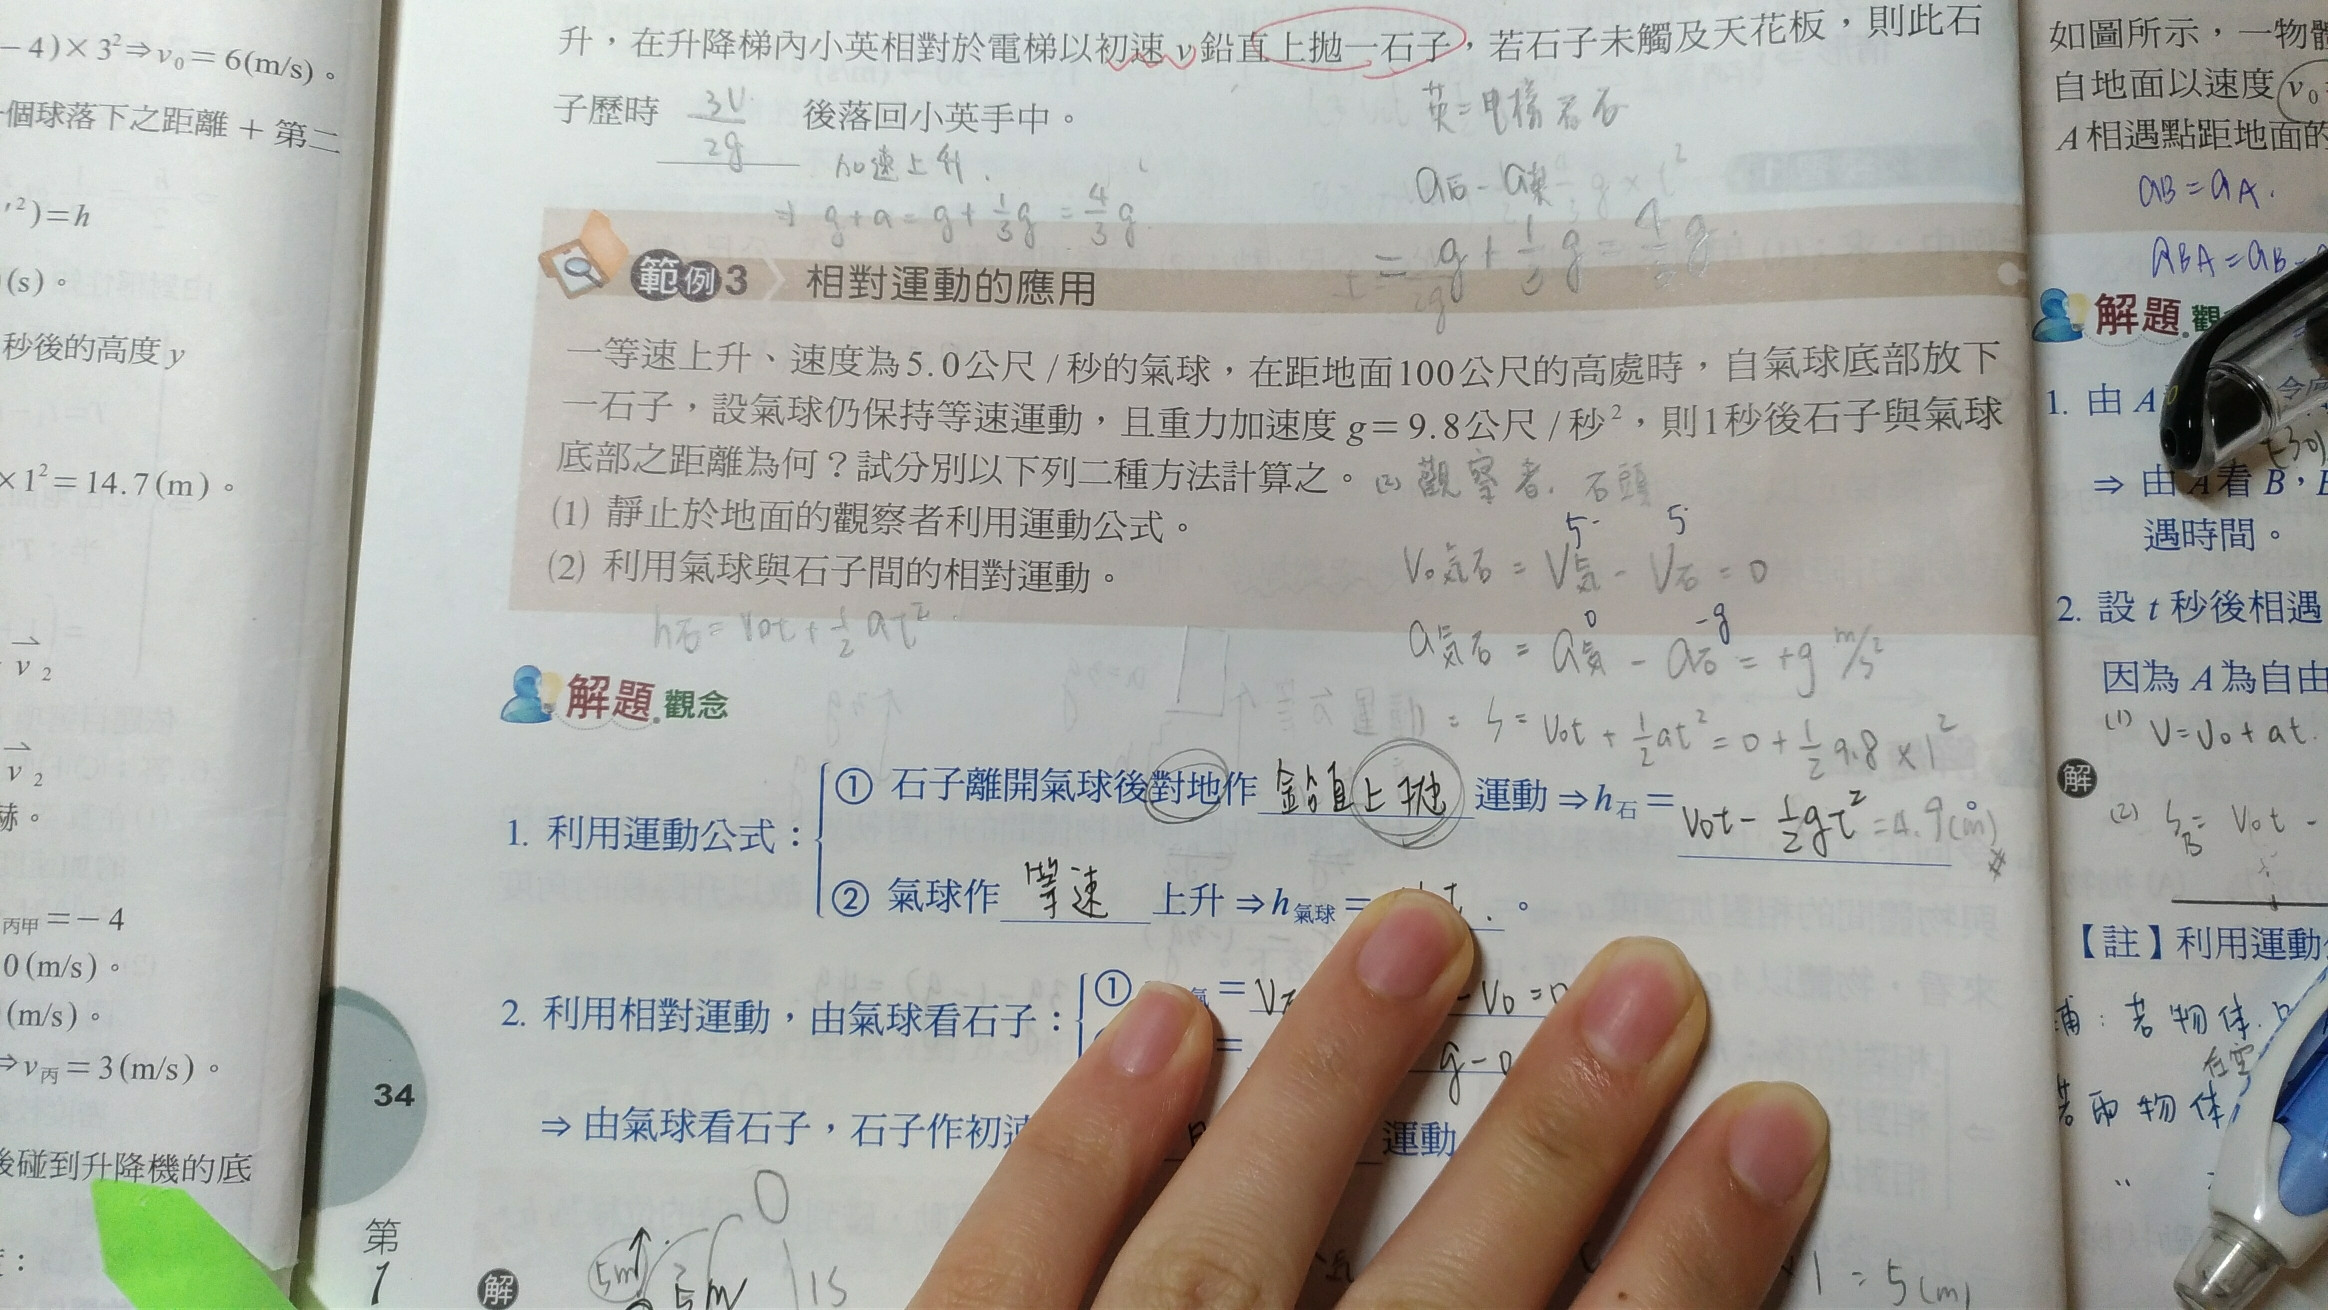 －4)×3²⇒v₀＝6(m/s)。
個球落下之距離＋第二
′²)＝h
(s)。
秒後的高度y
×1²＝14.7(m)。
v⃗₂
v⃗₂
丙甲＝－4
0(m/s)。
(m/s)。
⇒v丙＝3(m/s)。
後碰到升降機的底
升，在升降梯內小英相對於電梯以初速v鉛直上拋一石子，若石子未觸及天花板，則此石
子歷時 3v/2g 後落回小英手中。
加速上升.
⇒ g+a=g+1/3g=4/3g
a石-a英
= g+1/3g=4/3g
範例3 相對運動的應用
一等速上升、速度為5.0公尺/秒的氣球，在距地面100公尺的高處時，自氣球底部放下
一石子，設氣球仍保持等速運動，且重力加速度g＝9.8公尺/秒²，則1秒後石子與氣球
底部之距離為何？試分別以下列二種方法計算之。
(2)觀察者. 石頭
(1) 靜止於地面的觀察者利用運動公式。
(2) 利用氣球與石子間的相對運動。
5 5
V₀気石=V気-V石=0
0 -g
a気石=a気-a石=+g m/s²
h石=V₀t+1/2at²
解題觀念
= S=V₀t+1/2at²=0+1/2 9.8×1²
1. 利用運動公式：
① 石子離開氣球後對地作 鉛直上拋 運動⇒h石＝V₀t-1/2gt²。
=4.9(m)#
② 氣球作 等速 上升⇒h氣球＝ t.。
2. 利用相對運動，由氣球看石子：
① 氣＝V -V₀=0
＝ g-0
⇒由氣球看石子，石子作初速 運動
34
第
1
解
5m
5m
1s
1=5(m)
如圖所示，一物體
自地面以速度v₀
A相遇點距地面的
aB=aA.
aBA=aB-
解題觀
1. 由A
⇒由A看B，
遇時間。
2. 設t秒後相遇
因為A為自由
(1) V=V₀+at.
解
(2) SB= V₀t-
【註】利用運動
補：若物体
在空
若兩物体